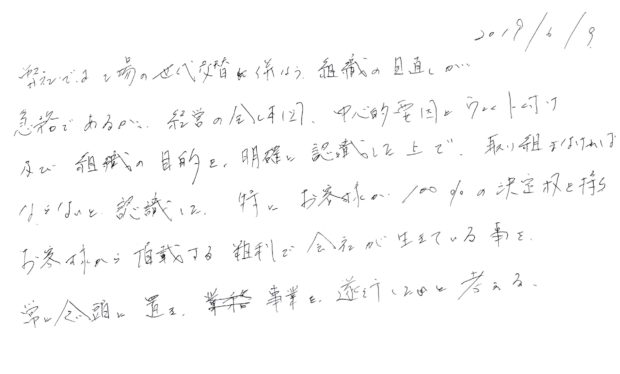 2019/6/9
弊社では工場の世代交替に係わらず組織の見直しが
急務であるが、経営の全体図、中心的要因と
及び組織の目的を、明確に認識した上で、取り組まなければ
ならないと認識した。特にお客様が100%の決定権を持ち
お客様から頂戴する粗利で会社が生きている事を、
常に念頭に置き、事業を、遂行したいと考える。